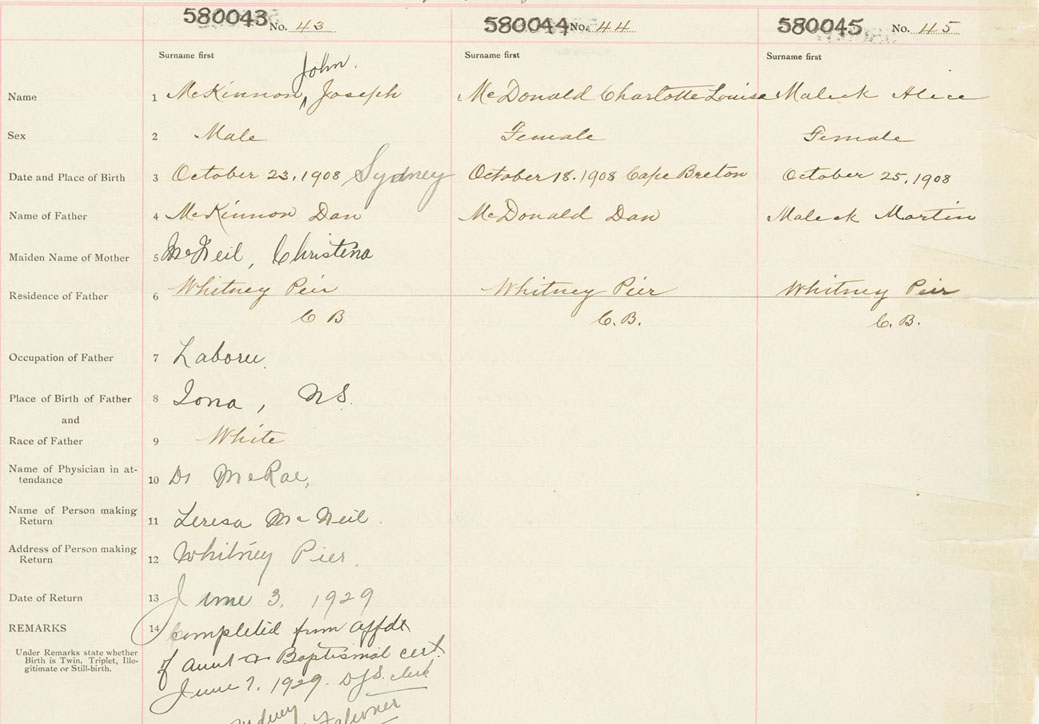 580043 No. 43 580044 No. 44 580045 No. 45
Surname first Surname first Surname first
John.
Name 1 McKinnon, Joseph McDonald Charlotte Louisa Maleck Alice
Sex 2 Male Female Female
Date and Place of Birth 3 October 23, 1908 Sydney October 18. 1908 Cape Breton October 25, 1908
Name of Father 4 McKinnon Dan McDonald Dan Maleck Martin
Maiden Name of Mother 5 McNeil, Christena
Residence of Father 6 Whitney Pier Whitney Pier Whitney Pier
C B C. B. C. B.
Occupation of Father 7 Laborer.
Place of Birth of Father 8 Iona, NS.
and
Race of Father 9 White
Name of Physician in at-
tendance 10 Dr McRae,
Name of Person making
Return 11 Teresa McNeil.
Address of Person making
Return 12 Whitney Pier.
Date of Return 13 June 3, 1929
REMARKS 14 Completed from affdt
Under Remarks state whether
Birth is Twin, Triplet, Ille-
gitimate or Still-birth.
of Aunt & Baptismal cert.
June 7, 1929.
Sydney